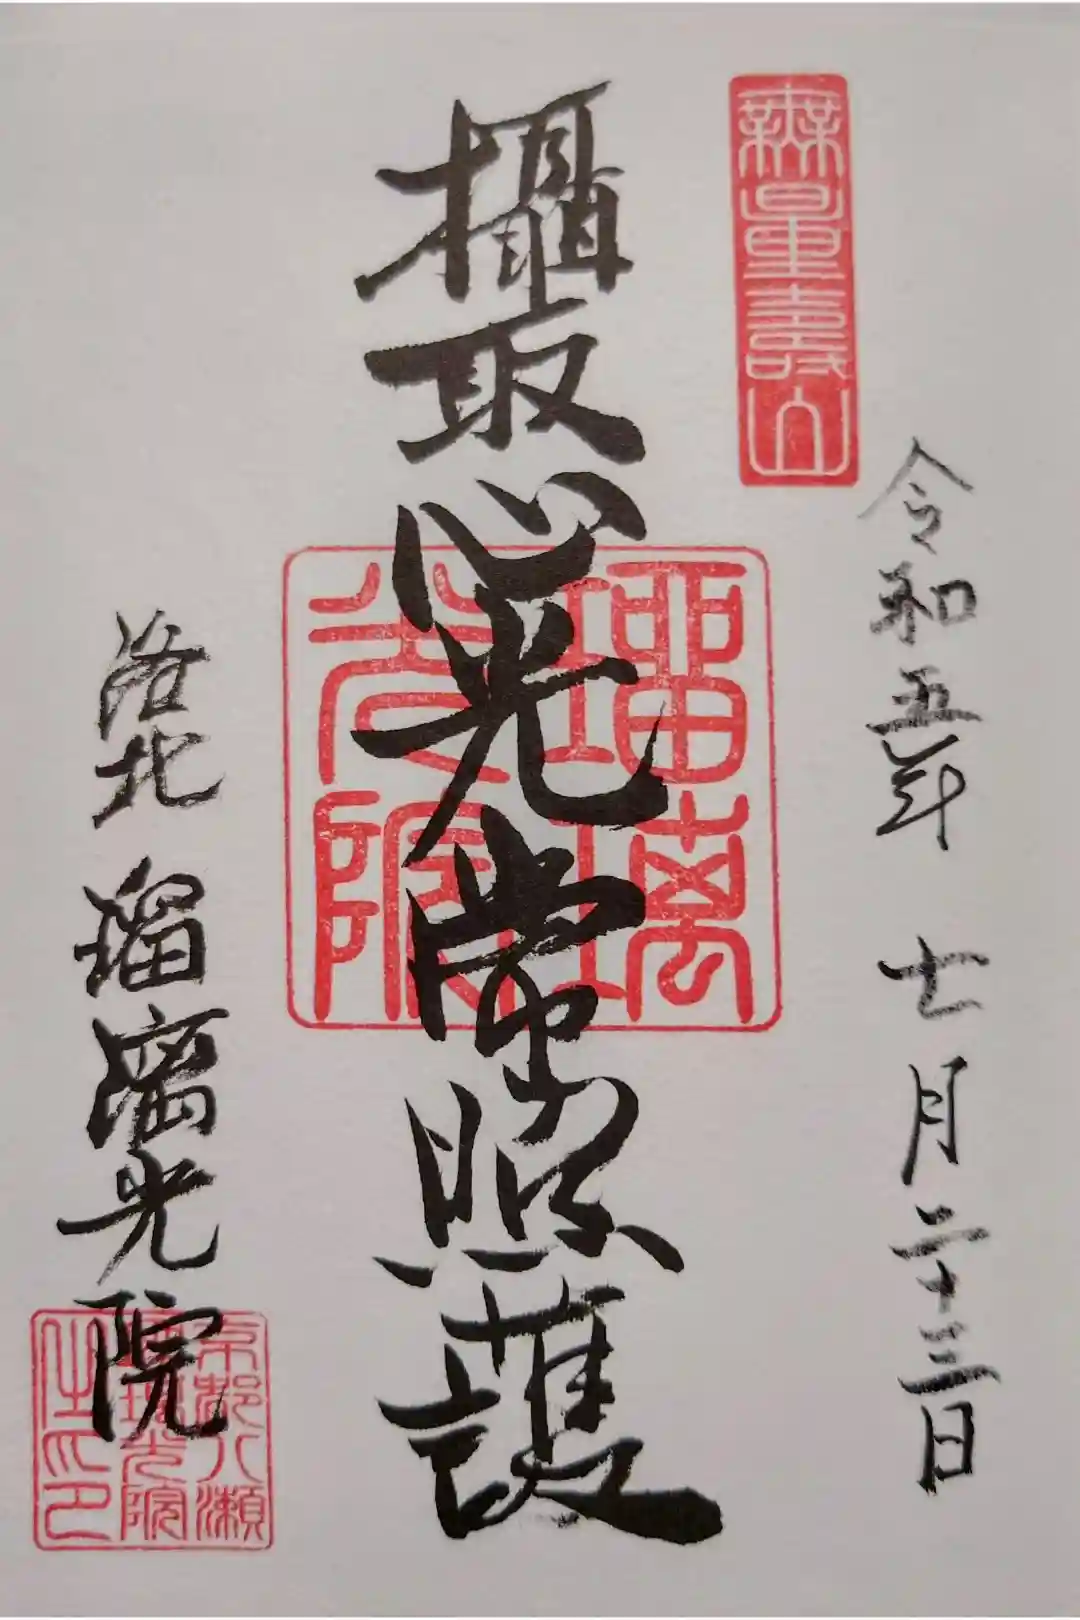 無量壽山
令和五年 七月二十三日
攝取心光常照護
瑠璃
光院
洛北 瑠璃光院
京都八瀬
瑠璃光院
之印